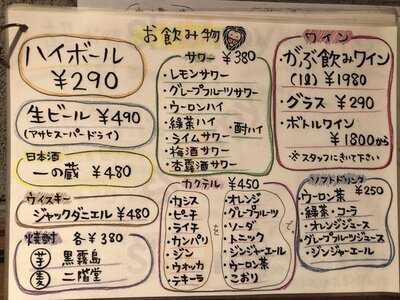 お飲み物
ハイボール
¥290
生ビール ¥490
(アサヒスーパードライ)
日本酒
一の蔵 ¥480
ウィスキー
ジャックダニエル ¥480
焼酎 各¥380
芋 黒霧島
麦 二階堂
サワー ¥380
・レモンサワー
・グレープルーツサワー
・ウーロンハイ
・緑茶ハイ
・ライムサワー
・梅酒サワー
・杏露酒サワー
・酎ハイ
カクテル ¥450
・カシス
・ピーチ
・ライチ
・カンパリ
・ジン
・ウォッカ
・テキーラ
を
・オレンジ
・グレプルーツ
・ソーダ
・トニック
・ジンジャーエール
・ウーロン茶
・こおり
で
ワイン
・がぶ飲みワイン
(1ℓ) ¥1980
・グラス ¥290
・ボトルワイン
¥1800から
※スタッフにきいて下さい
ソフトドリンク
¥250
・ウーロン茶
・緑茶・コーラ
・オレンジジュース
・グレプルーツジュース
・ジンジャーエール